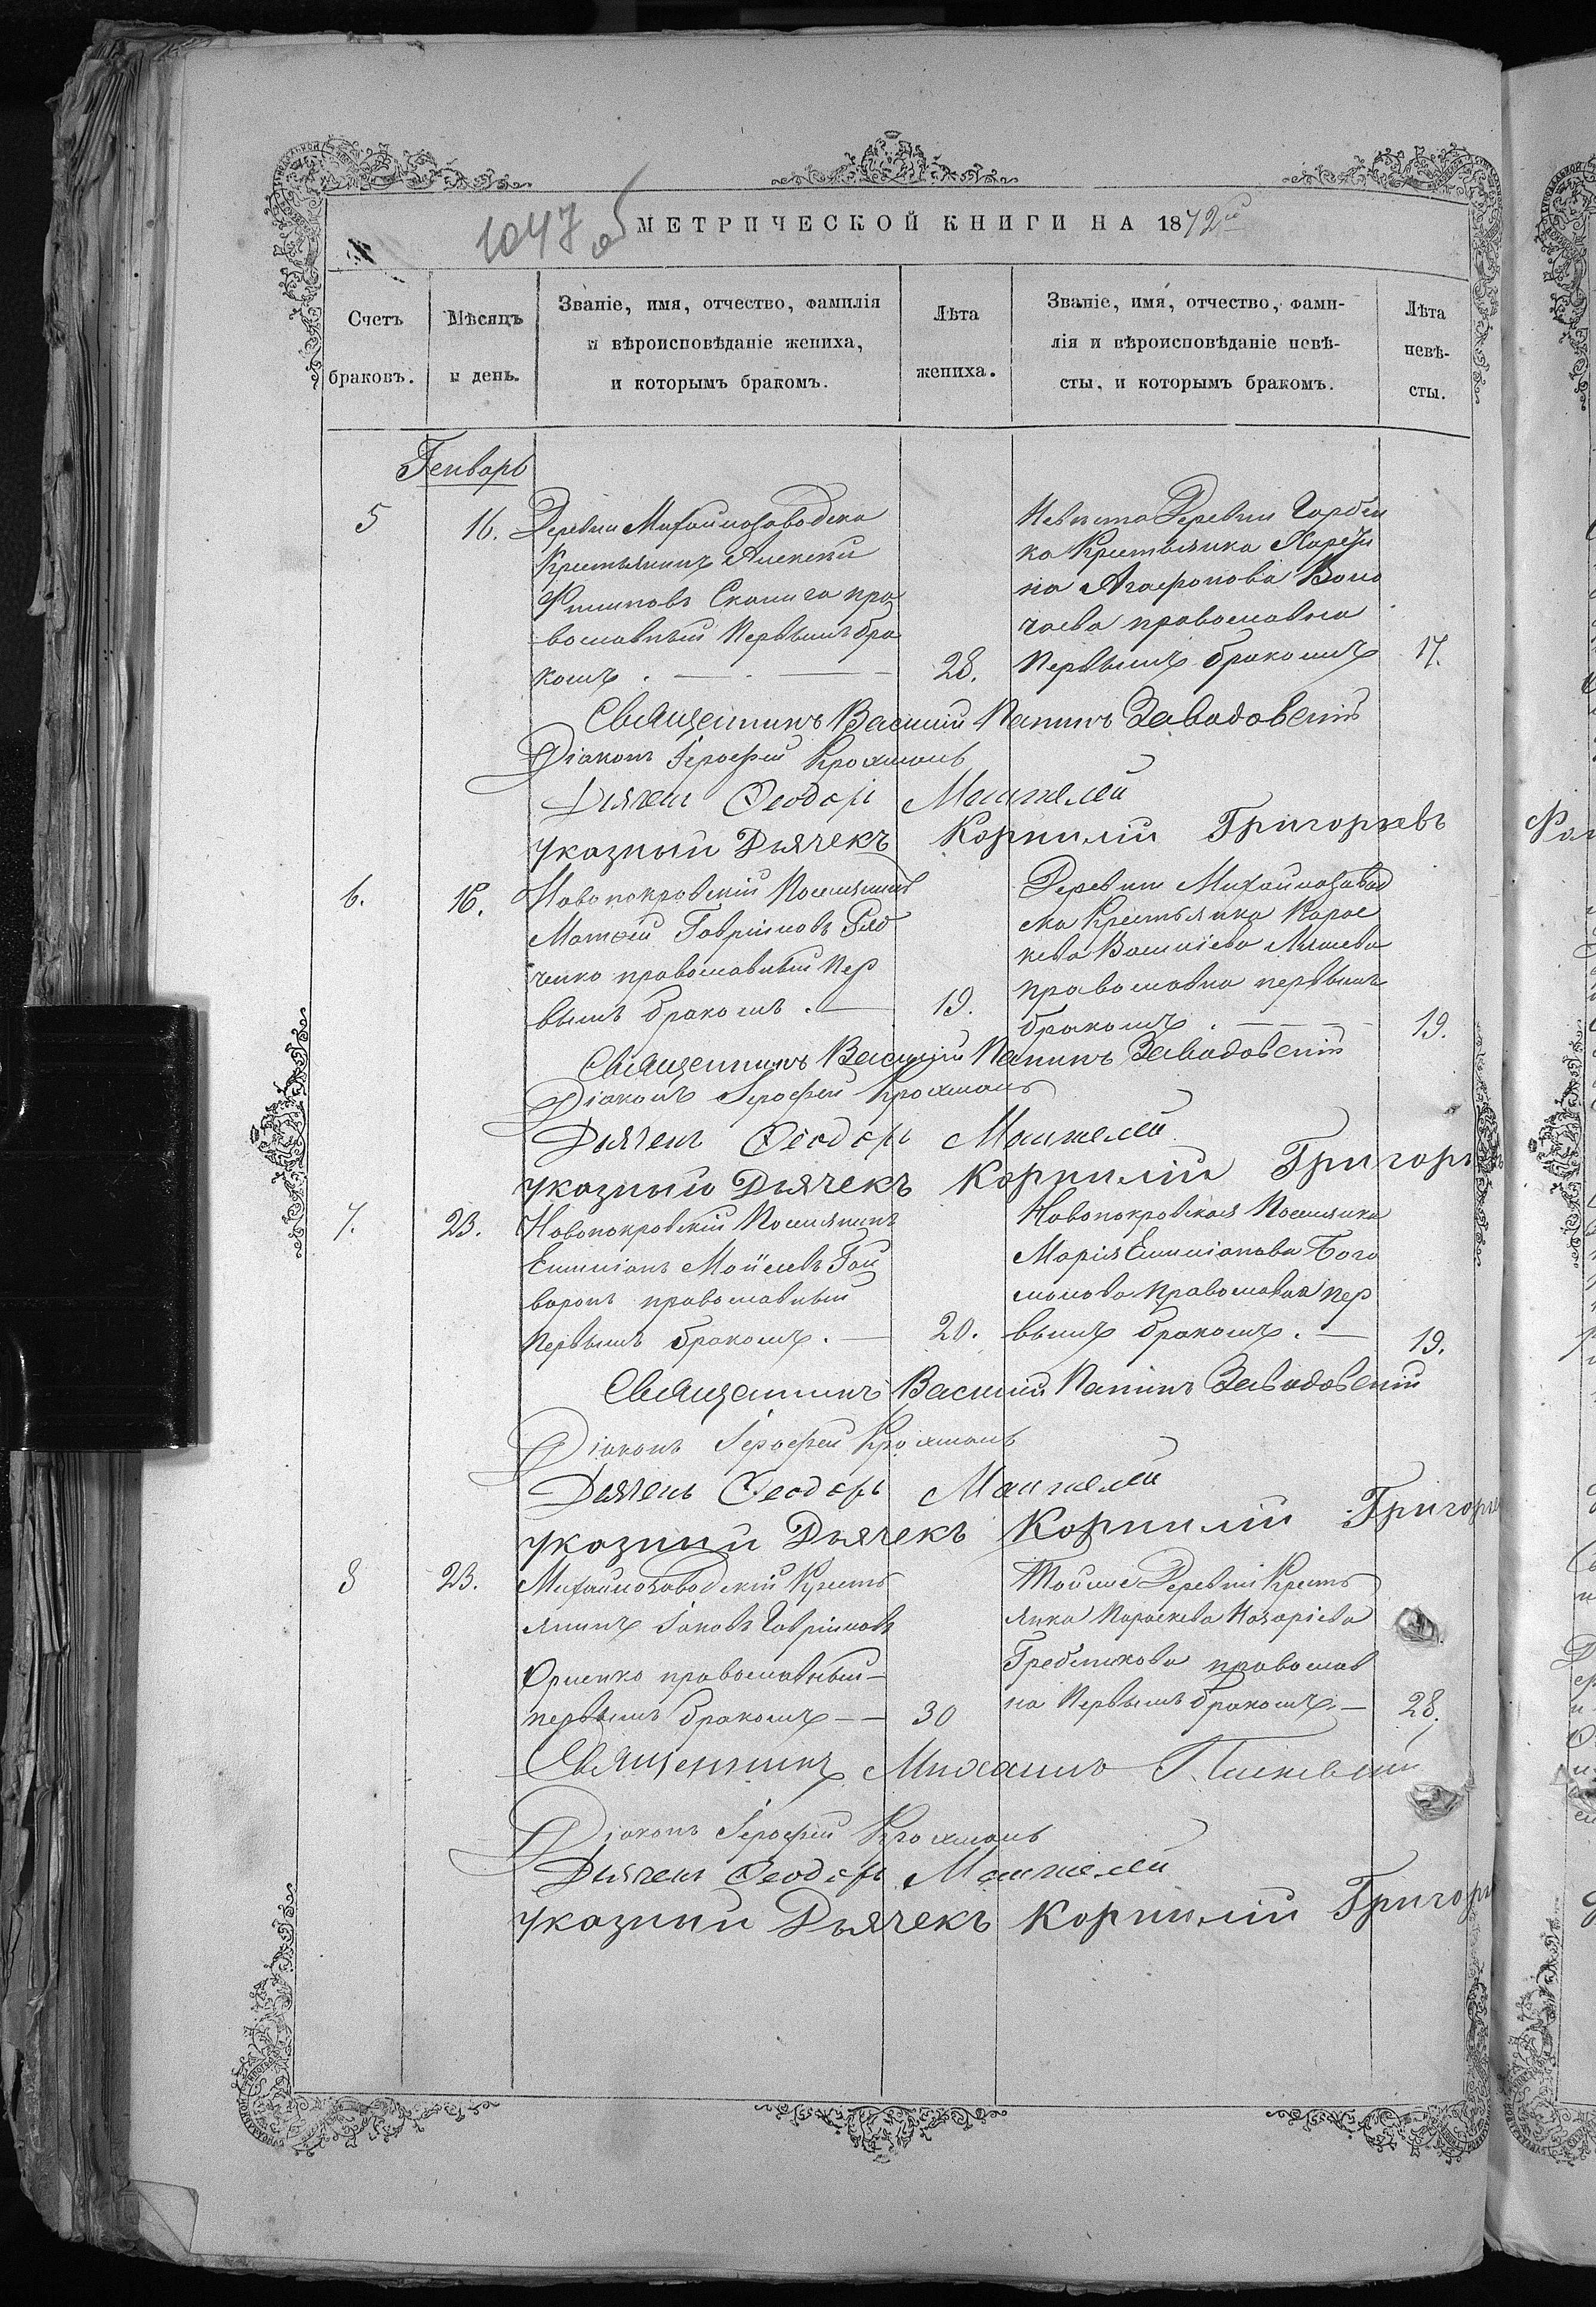 1047 об
МЕТРИЧЕСКОЙ КНИГИ НА 1872й
Счетъ браковъ.
Мѣсяцъ и день.
Званіе, имя, отчество, фамилія
и вѣроисповѣданіе жениха,
и которымъ бракомъ.
Лѣта
жениха.
Званіе, имя, отчество, фами-
лія и вѣроисповѣданіе невѣ-
сты, и которымъ бракомъ.
Лѣта
невѣ-
сты.
Генварь
5
16.
Деревни Михайлозаводска
Крестьянинъ Алексѣй
Филиповъ пра
вославный Первымъ бра
комъ.
28.
Невѣста Деревни Горбен
ка Крестьянка
на Агафонова Воло
чаева православна
Первымъ бракомъ
17.
Священникъ Василій Завадовскій
Діаконъ Іероѳей Крохмаль
Дьячекъ Ѳеодоръ
указный Дьячекъ Корнилій Григорьевъ
6.
16.
Новопокровскій Поселянинъ
Матѳей Гавріиловъ Ряб
ченко православный Пер
вымъ бракомъ.
19.
Деревни Михайлозавод
ска Крестьянка Парас
кева Василіева
православна первымъ
бракомъ.
19.
Священникъ Василій Завадовскій
Діаконъ Іероѳей Крохмаль
Дьячекъ Ѳеодоръ
указный Дьячекъ Корнилій Григорь
7.
23.
Новопокровскій Поселянинъ
Емиліанъ Моѵсеевъ Гай
воронъ православный
Первымъ бракомъ.
20.
Новопокровская Поселянка
Марія Емиліанова Бого
молова Православная Пер
вымъ бракомъ.
19.
Священникъ Василій Завадовскій
Діаконъ Іероѳей Крохмаль
Дьячекъ Ѳеодоръ
указний Дьячекъ Корнилій Григорь
8
23.
Михайлозаводскій Кресть
янинъ Іаковъ Гавріиловъ
православный
первымъ бракомъ
30
Той же Деревни Кресть
янка Параскева Назаріева
Гребеникова православ
на Первымъ бракомъ.
28.
Священникъ Михаилъ
Діаконъ Іероѳей Крохмаль
Дьячекъ Ѳеодоръ
указний Дьячекъ Корнилій Григорь